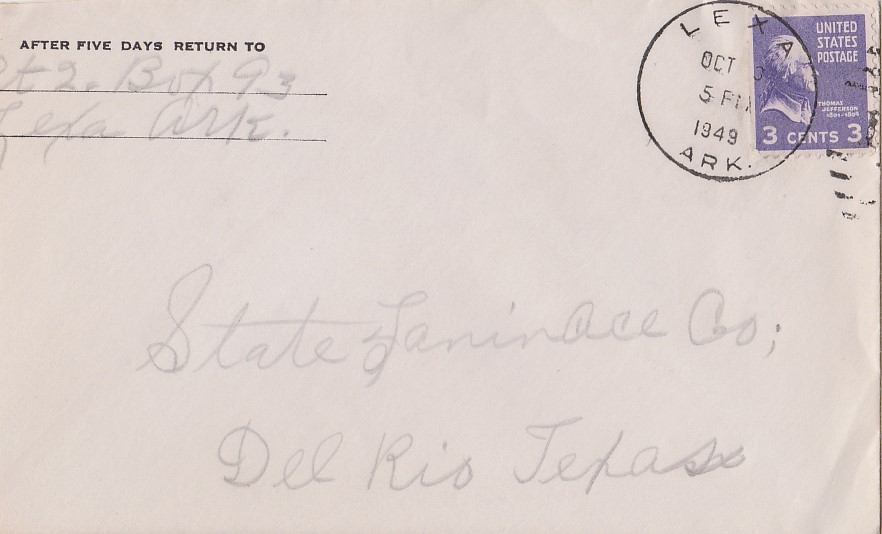 AFTER FIVE DAYS RETURN TO
Rt 2. Box 93
Lexa Ark.
LEXA
OCT 3
5 PM
1949
ARK.
UNITED
STATES
POSTAGE
THOMAS
JEFFERSON
1801-1809
3 CENTS 3
State Co;
Del Rio Texas